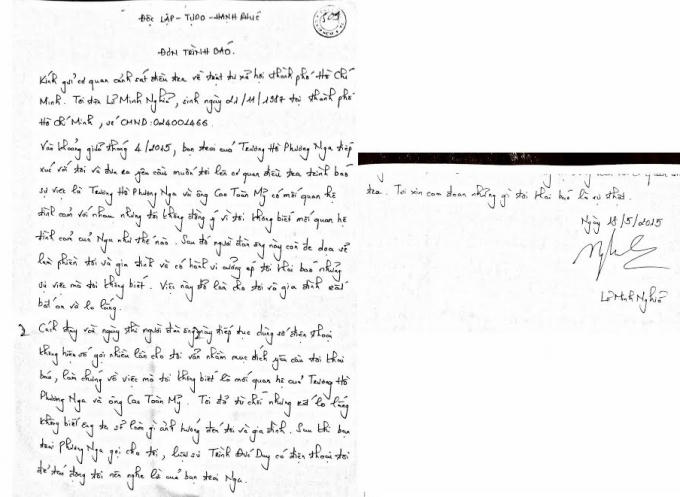 ĐỘC LẬP - TỰ DO - HẠNH PHÚC
ĐƠN TRÌNH BÁO.
Kính gửi cơ quan cảnh sát điều tra về trật tự xã hội thành phố Hồ Chí
Minh. Tôi tên Lê Minh Nghiêu, sinh ngày 21/11/1987 tại thành phố
Hồ Chí Minh, số CMND: 024002466.
Vào khoảng giữa tháng 4/2015, bạn trai của Trương Hồ Phương Nga tiếp
xúc với tôi và đưa ra yêu cầu muốn tôi lên cơ quan điều tra trình báo
sự việc là Trương Hồ Phương Nga và ông Cao Toàn Mỹ có mối quan hệ
tình cảm với nhau nhưng tôi không đồng ý vì tôi không biết mối quan hệ
tình cảm của Nga như thế nào. Sau đó người đàn ông này còn đe dọa sẽ
làm phiền tôi và gia đình và có hành vi cưỡng ép tôi khai báo những
sự việc mà tôi không biết. Việc này đã làm cho tôi và gia đình rất
bất an và lo lắng.
Cách đây vài ngày thì người đàn ông này tiếp tục dùng số điện thoại
không hiện số gọi nhiều lần cho tôi vẫn nhằm mục đích yêu cầu tôi khai
báo, làm chứng về việc mà tôi không biết là mối quan hệ của Trương Hồ
Phương Nga và ông Cao Toàn Mỹ. Tôi đã từ chối nhưng rất lo lắng
không biết ông ta sẽ làm gì ảnh hưởng đến tôi và gia đình. Sau khi bạn
trai Phương Nga gọi cho tôi, luật sư Trịnh Đức Duy có điện thoại tới
để tác động tôi nên nghe lời của bạn trai Nga.
tra. Tôi xin cam đoan những gì tôi khai báo là sự thật.
Ngày 18/5/2015
Lê Minh Nghiêu